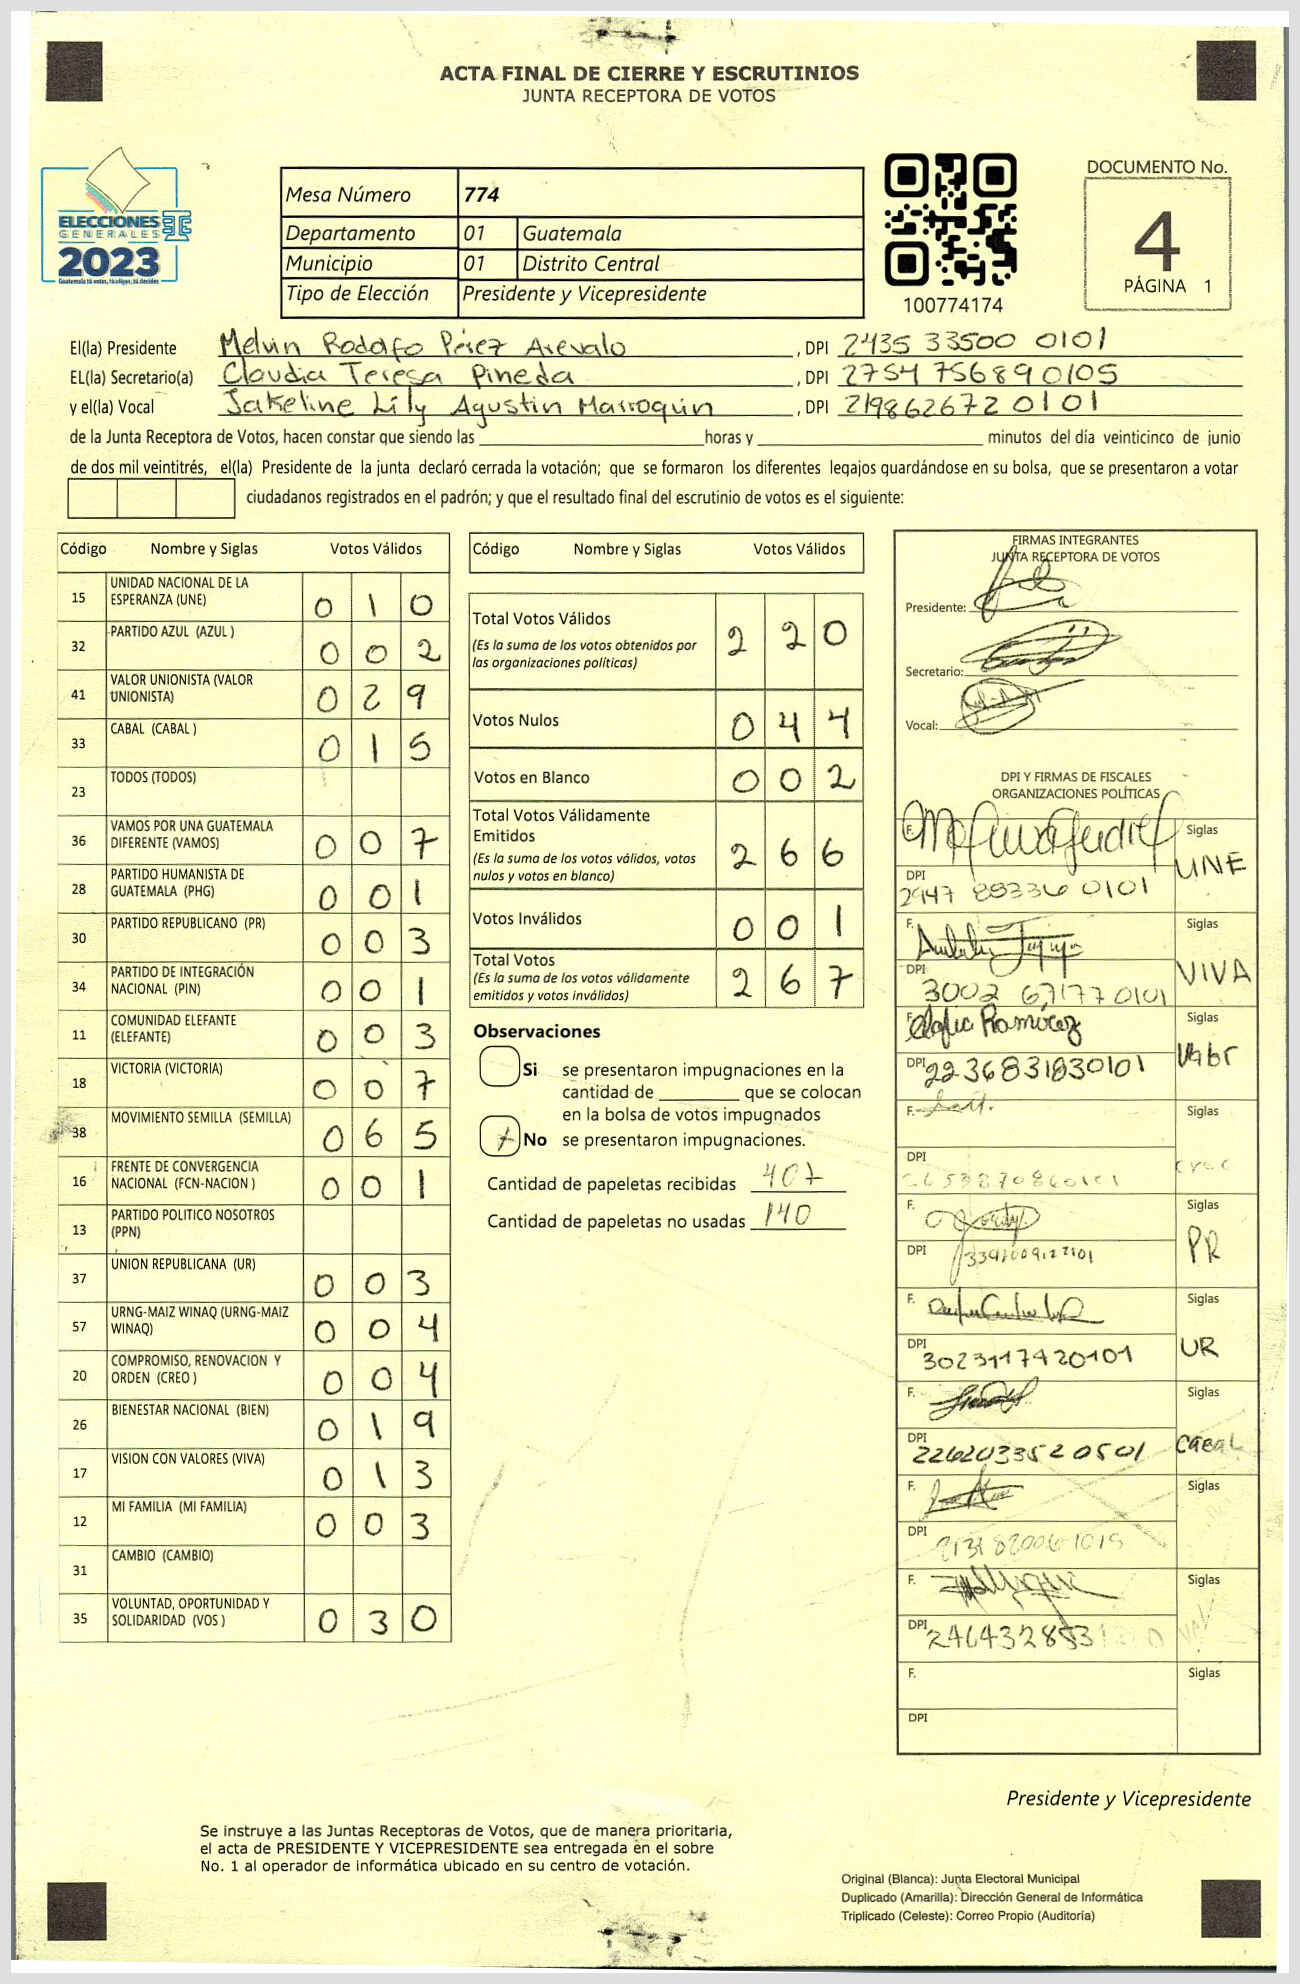 ACTA FINAL DE CIERRE Y ESCRUTINIOS
JUNTA RECEPTORA DE VOTOS
ELECCIONES
GENERALES
2023
Guatemala tú votas, tú eliges, tú decides
Mesa Número 774
Departamento 01 Guatemala
Municipio 01 Distrito Central
Tipo de Elección Presidente y Vicepresidente
100774174
DOCUMENTO No.
4
PÁGINA 1
El(la) Presidente Melvin Rodolfo Pérez Arevalo, DPI 2435 33500 0101
EL(la) Secretario(a) Claudia Teresa Pineda, DPI 2754 75689 0105
y el(la) Vocal Jakeline Lily Agustin Marroquin, DPI 219862672 0101
de la Junta Receptora de Votos, hacen constar que siendo las horas y minutos del día veinticinco de junio
de dos mil veintitrés, el(la) Presidente de la junta declaró cerrada la votación; que se formaron los diferentes legajos guardándose en su bolsa, que se presentaron a votar
ciudadanos registrados en el padrón; y que el resultado final del escrutinio de votos es el siguiente:
Código Nombre y Siglas Votos Válidos
15 UNIDAD NACIONAL DE LA ESPERANZA (UNE) 0 1 0
32 PARTIDO AZUL (AZUL ) 0 0 2
41 VALOR UNIONISTA (VALOR UNIONISTA) 0 2 9
33 CABAL (CABAL ) 0 1 5
23 TODOS (TODOS)
36 VAMOS POR UNA GUATEMALA DIFERENTE (VAMOS) 0 0 7
28 PARTIDO HUMANISTA DE GUATEMALA (PHG) 0 0 1
30 PARTIDO REPUBLICANO (PR) 0 0 3
34 PARTIDO DE INTEGRACIÓN NACIONAL (PIN) 0 0 1
11 COMUNIDAD ELEFANTE (ELEFANTE) 0 0 3
18 VICTORIA (VICTORIA) 0 0 7
38 MOVIMIENTO SEMILLA (SEMILLA) 0 6 5
16 FRENTE DE CONVERGENCIA NACIONAL (FCN-NACION ) 0 0 1
13 PARTIDO POLITICO NOSOTROS (PPN)
37 UNION REPUBLICANA (UR) 0 0 3
57 URNG-MAIZ WINAQ (URNG-MAIZ WINAQ) 0 0 4
20 COMPROMISO, RENOVACION Y ORDEN (CREO ) 0 0 4
26 BIENESTAR NACIONAL (BIEN) 0 1 9
17 VISION CON VALORES (VIVA) 0 1 3
12 MI FAMILIA (MI FAMILIA) 0 0 3
31 CAMBIO (CAMBIO)
35 VOLUNTAD, OPORTUNIDAD Y SOLIDARIDAD (VOS ) 0 3 0
Código Nombre y Siglas Votos Válidos
Total Votos Válidos 2 2 0
(Es la suma de los votos obtenidos por
las organizaciones políticas)
Votos Nulos 0 4 4
Votos en Blanco 0 0 2
Total Votos Válidamente
Emitidos 2 6 6
(Es la suma de los votos válidos, votos
nulos y votos en blanco)
Votos Inválidos 0 0 1
Total Votos 2 6 7
(Es la suma de los votos válidamente
emitidos y votos inválidos)
Observaciones
Si se presentaron impugnaciones en la
cantidad de que se colocan
en la bolsa de votos impugnados
No se presentaron impugnaciones.
Cantidad de papeletas recibidas 407
Cantidad de papeletas no usadas 140
FIRMAS INTEGRANTES
JUNTA RECEPTORA DE VOTOS
Presidente:
Secretario:
Vocal:
DPI Y FIRMAS DE FISCALES
ORGANIZACIONES POLÍTICAS
F. Siglas
UNE
DPI
F. Siglas
VIVA
DPI 3002 67177 0101
F. Ramírez Siglas
Valor
DPI 2236831830101
F. Siglas
DPI
F. Siglas
PR
DPI
F. Siglas
UR
DPI 3023117420101
F. Siglas
Cabal
DPI 2262033520501
F. Siglas
DPI
F. Siglas
DPI
F. Siglas
DPI
Presidente y Vicepresidente
Se instruye a las Juntas Receptoras de Votos, que de manera prioritaria,
el acta de PRESIDENTE Y VICEPRESIDENTE sea entregada en el sobre
No. 1 al operador de informática ubicado en su centro de votación.
Original (Blanca): Junta Electoral Municipal
Duplicado (Amarilla): Dirección General de Informática
Triplicado (Celeste): Correo Propio (Auditoría)